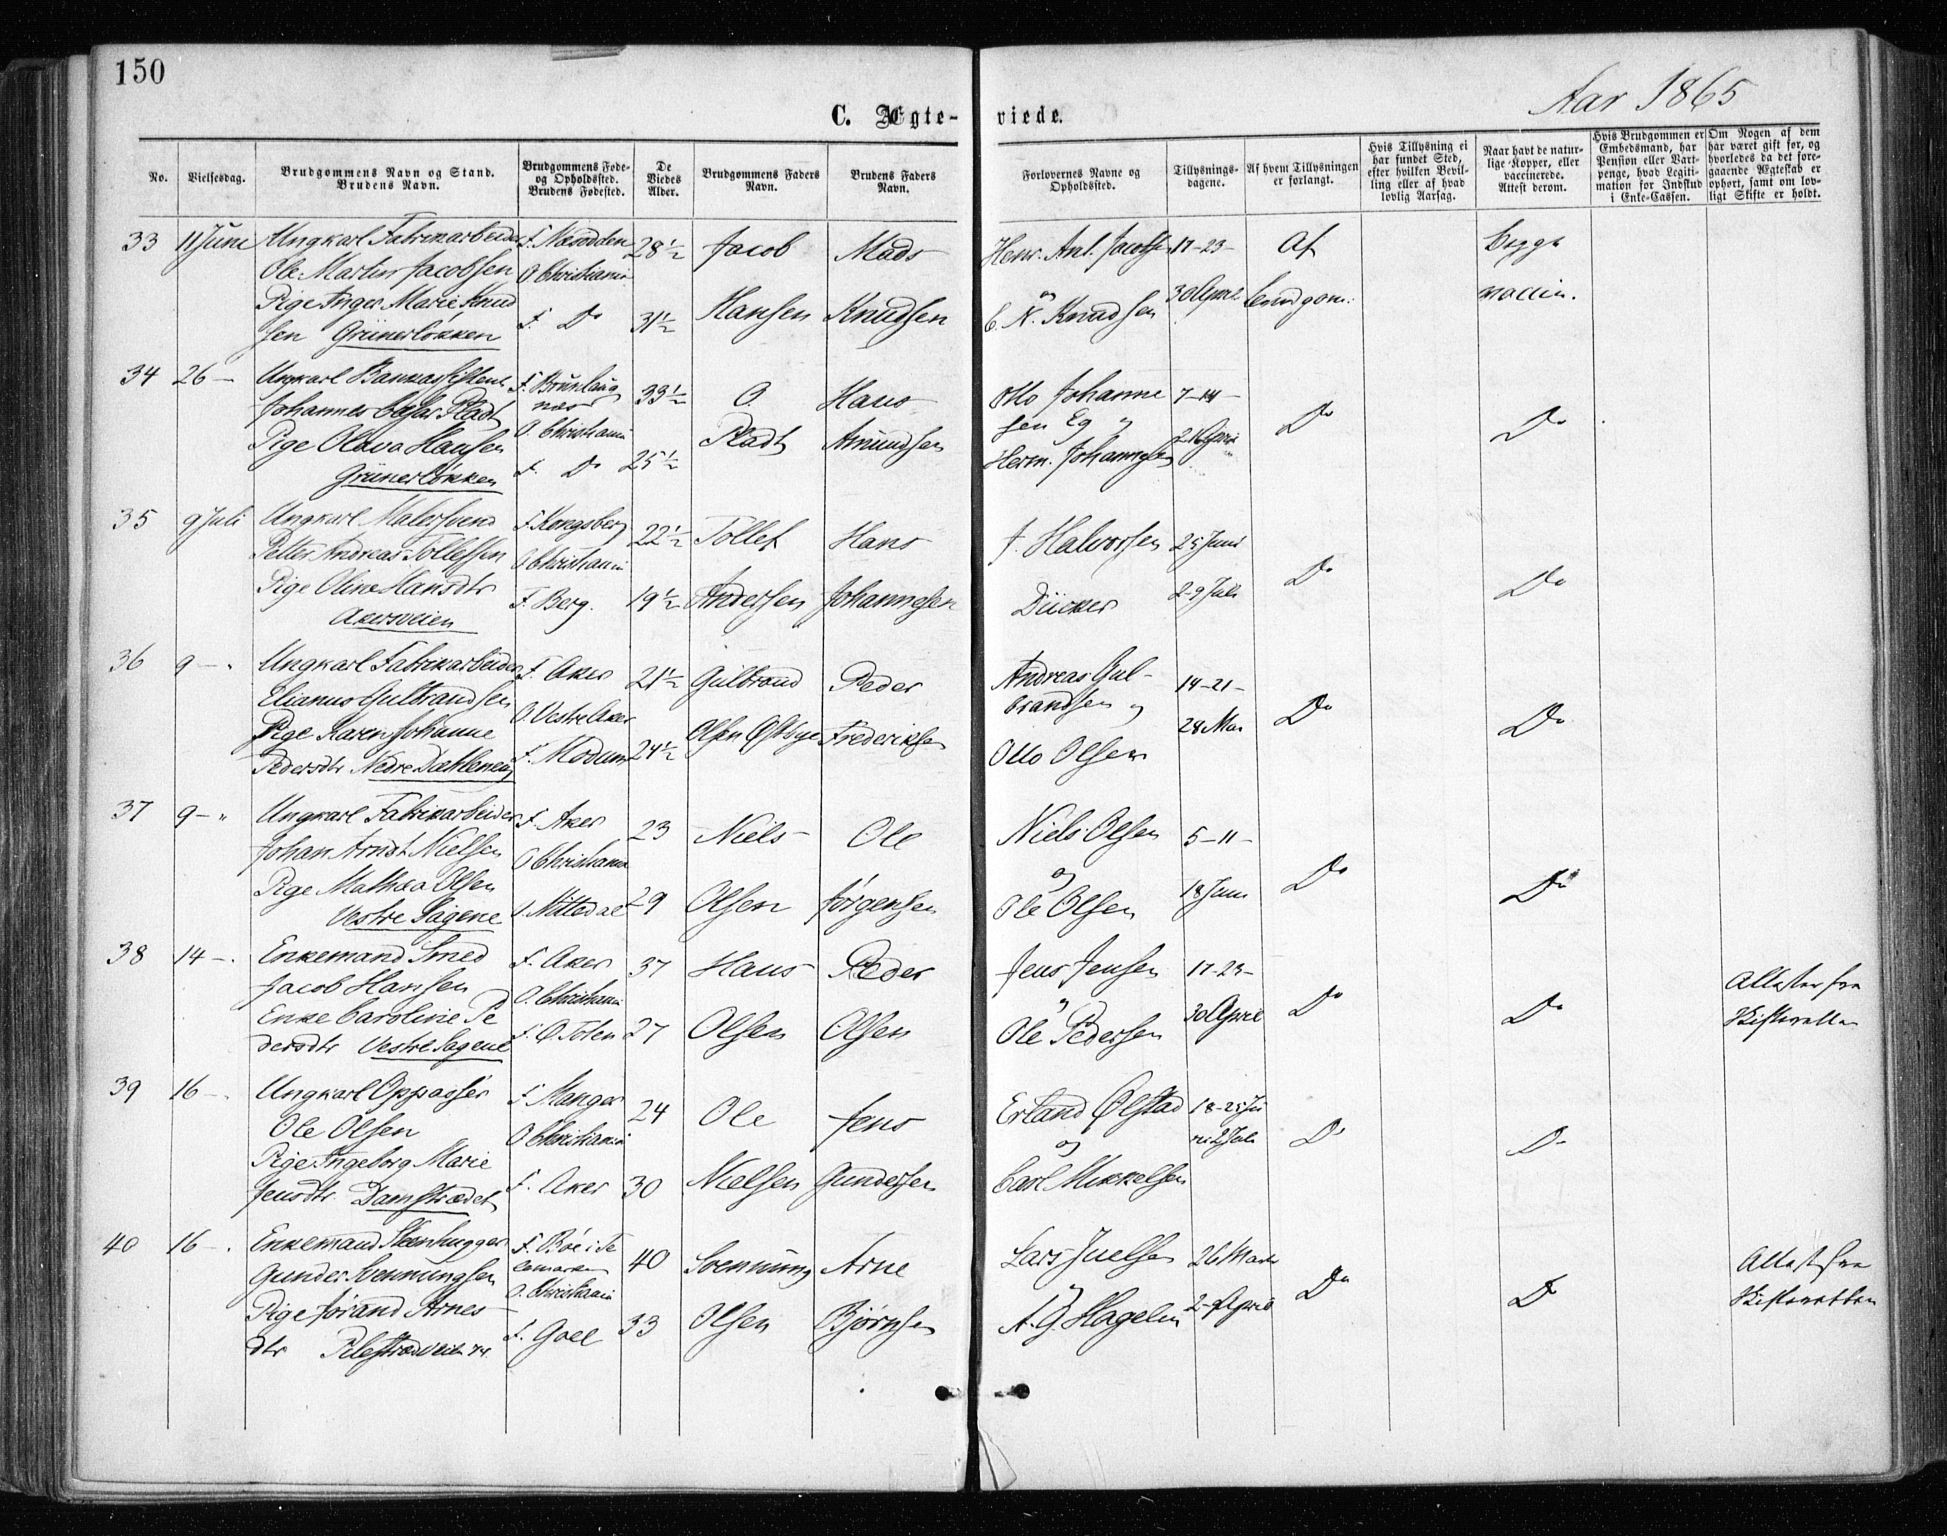 150
Aar 1865
C. Ægte-
viede.
No.
Vielsesdag.
Brudgommens Navn og Stand.
Brudens Navn.
Brudgommens Føde-
og Opholdssted.
Brudens Fødested.
De
Viedes
Alder.
Brudgommens Faders
Navn.
Brudens Faders
Navn.
Forlovernes Navne og
Opholdssted.
Tillysnings-
dagene.
Af hvem Tillysningen
er forlangt.
Hvis Tillysning ei
har fundet Sted,
efter hvilken Bevil-
ling eller af hvad
lovlig Aarsag.
Naar havt de natur-
lige Kopper, eller
vaccinerede.
Attest derom.
Hvis Brudgommen er
Embedsmand, har
Pension eller Vart-
penge, hvad Legiti-
mation for Indskud
i Enke-Cassen.
Om Nogen af dem
har været gift før, og
hvorledes da det fore-
gaaende Ægteskab er
ophørt, samt om lov-
ligt Skifte er holdt.
33 11 Juni Ungkarl Fabrikarbeider F. Næsodden 28½ Jacob Mads Henr. Ant. Jacobsen 17-23- Af begge
Ole Martin Jacobsen O Christiania
Pige Inger Marie Knud F. Do 31½ Hansen Knudsen og C. N. Knudsen 30 April brudgom. vaccin.
sen Grünerløkken
34 26 - Ungkarl Bankassistent F. Brunlaug 33½ O. Hans Otto Johanne 7-14-
Johannes Pladt næs sen Eg og Do Do
Pige Olava Hansen O. Christiania Pladt Amundsen 21 April
F. Do 25½ Herm. Johannesen
Grünerløkken
35 9 Juli Ungkarl Malersvend F. Kongsberg 22½ Tollef Hans J. Halvorsen 25 Juni
Petter Andreas Tollefsen O Christiania Do Do
Pige Oline Hansdtr F. Berg. 19½ Andersen Johannesen Dücker 2-9 Juli
Akersveien
36 9 - " Ungkarl Fabrikarbeider F. Aker 21½ Gulbrand Peder Andreas Gul- 14-21-
Elianus Gulbrandsen O. Vestre Aker brandsen og Do Do
Pige Karen Johanne F. Modum 24½ Olsen Østbye Frederiksen 28 Mai
Pedersdtr Nedre Dæhleneng Otto Olsen
37 9 - " Ungkarl Fabrikarbeider F. Aker 23 Niels Ole Niels Olsen 5-11-
Johan Arndt Nielsen O Christiania og Do Do
Pige Mathea Olsen F. Nittedal 29 Olsen Jørgensen Ole Olsen 18 Juni
Vestre Sagene
38 14 - . Enkemand Smed F. Aker 37 Hans Peder Jens Jensen 17-23- Attester fra
Jacob Hansen O. Christiania og Do Do
Enke Caroline Pe F. Ø. Toten 27 Olsen Olsen Ole Pedersen 30 April Skifteretten
dersdtr Vestre Sagene
39 16 - . Ungkarl Oppasser F. Manger 24 Ole Jens Erland Ølstad 18-25 Ju
Ole Olsen O Christiania og ni 2 Juli Do Do
Pige Ingeborg Marie F. Aker 30 Nielsen Gundersen Carl Mikkelsen
Jensdtr. Damstrædet
40 16 - . Enkemand Steenhugger F. Bøe i Te 40 Svennung Arne Lars Juelsen 26 Marts Attest fra
Gunder Svennungsen lemarken og Do Do
Pige Jørand Arnes O. Christiania Olsen Bjørnsen A. G. Hagelin 2-9 April Skifteretten
dtr Pilestrædveien 74 F. Goel 33